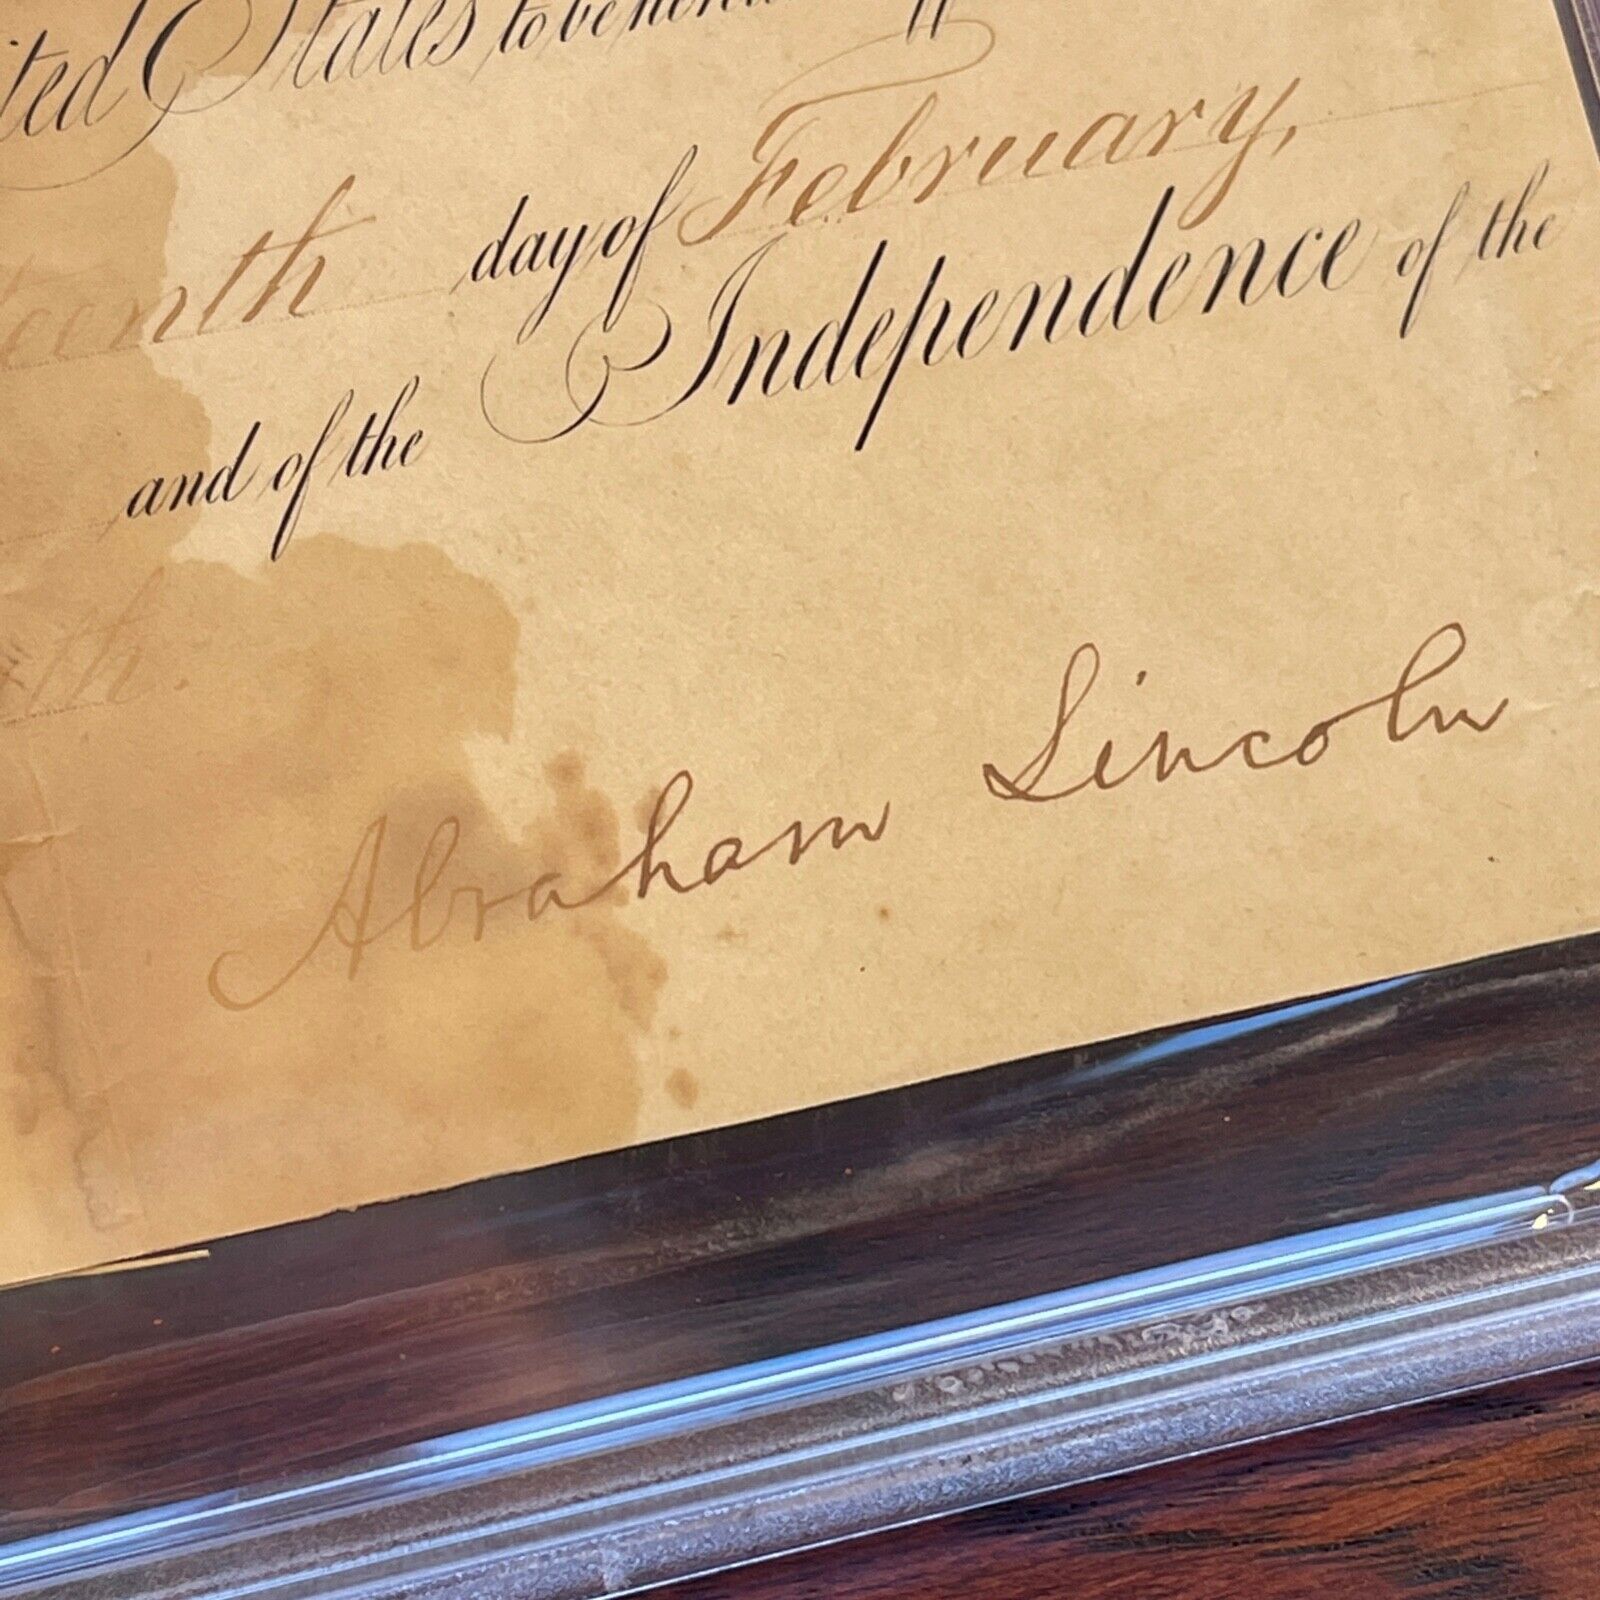 States to be
day of February,
and of the Independence of the
th.
Abraham Lincoln